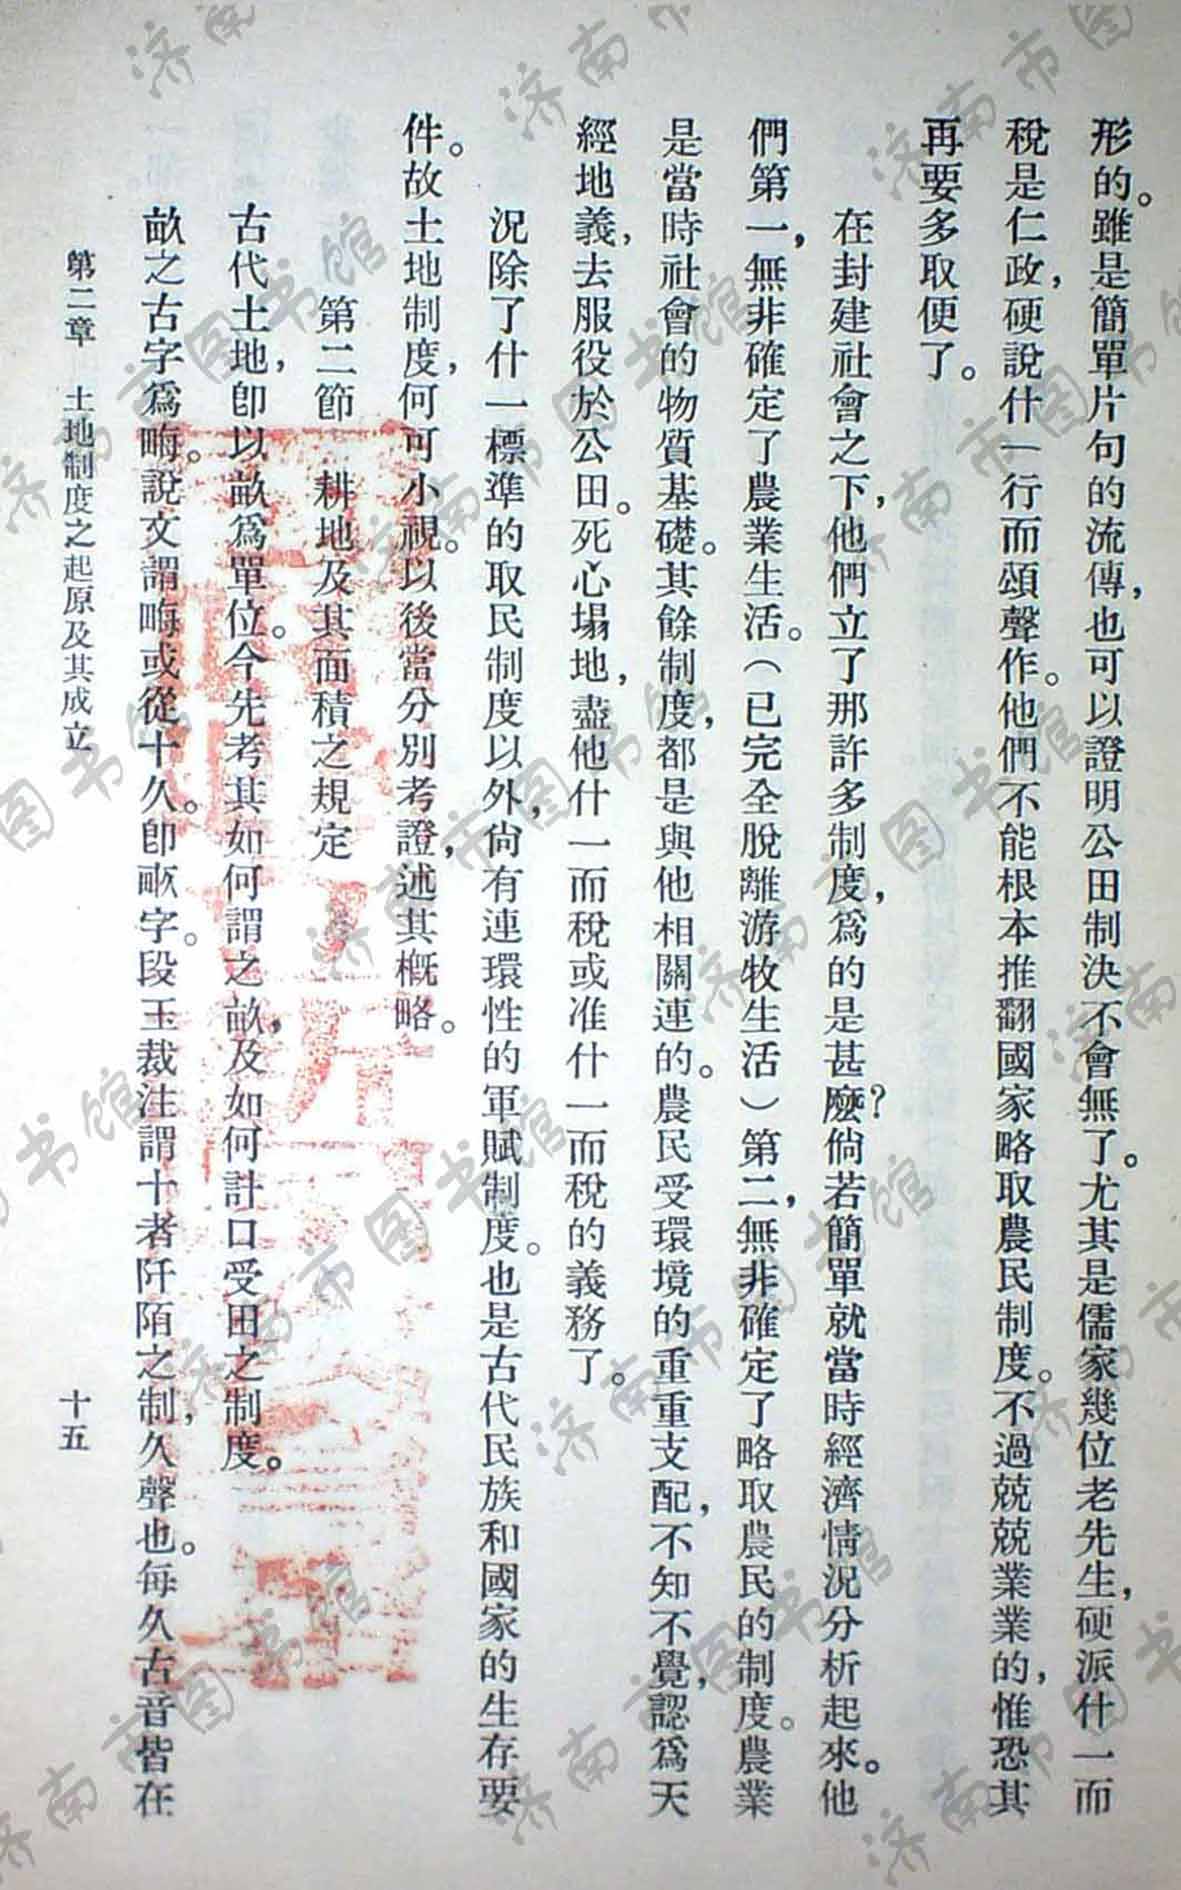 形的。雖是簡單片句的流傳，也可以證明公田制決不會無了。尤其是儒家幾位老先生，硬派什一而
稅是仁政，硬說什一行而頌聲作。他們不能根本推翻國家略取農民制度。不過兢兢業業的，惟恐其
再要多取便了。
在封建社會之下，他們立了那許多制度，爲的是甚麼？倘若簡單就當時經濟情况分析起來。他
們第一，無非確定了農業生活。（已完全脫離游牧生活）第二，無非確定了略取農民的制度。農業
是當時社會的物質基礎。其餘制度，都是與他相關連的。農民受環境的重重支配，不知不覺，認爲天
經地義，去服役於公田。死心塌地，盡他什一而稅或准什一而稅的義務了。
況除了什一標準的取民制度以外，尙有連環性的軍賦制度。也是古代民族和國家的生存要
件。故土地制度，何可小視。以後當分別考證，述其槪略。
第二節 耕地及其面積之規定
古代土地，卽以畝爲單位。今先考其如何謂之畝，及如何計口受田之制度。
畝之古字爲畮。說文謂畮或從十久。卽畝字。段玉裁注謂十者阡陌之制，久聲也。每久古音皆在
第二章 土地制度之起原及其成立
十五
济南市图书馆